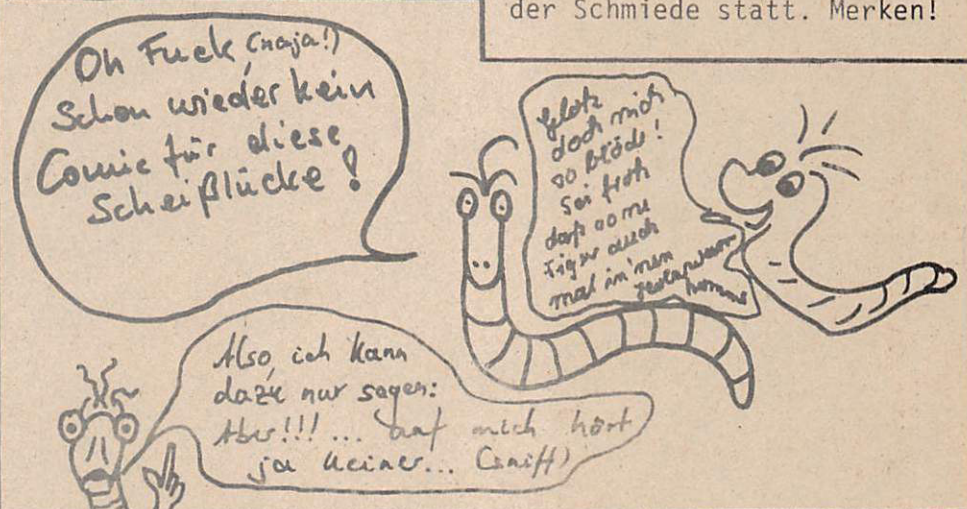 der Schmiede statt. Merken!
Oh Fuck (naja!)
Schon wieder kein
Comic für diese
Scheißlücke!
Glotz
doch mich
so blöde!
Sei froh
daß so 'n
Tiger auch
mal in 'nen
kommt
Also, ich kann
dazu nur sagen:
Aber!!! ... auf mich hört
ja keiner... (sniff)